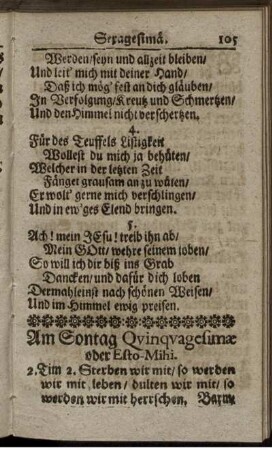 Sexagesimâ. 105
Werden/seyn und allzeit bleiben/
Und leit' mich mit deiner Hand/
Daß ich mög' fest an dich gläuben/
In Verfolgung/Kreutz und Schmertzen/
Und den Himmel nicht verschertzen.
4.
Für des Teuffels Listigkeit
Wollest du mich ja behüten/
Welcher in der letzten Zeit
Fänget grausam an zu wüten/
Er wolt' gerne mich verschlingen/
Und in ew'ges Elend bringen.
5.
Ach! mein JEsu! treib ihn ab/
Mein GOtt/wehre seinem toben/
So will ich dir biß ins Grab
Dancken/und dafür dich loben
Dermahleinst nach schönen Weisen/
Und im Himmel ewig preisen.
Am Sontag Qvinqvagesimæ
oder Esto-Mihi.
2. Tim 2. Sterben wir mit/so werden
wir mit leben/ dulten wir mit/ so
werden wir mit herrschen.